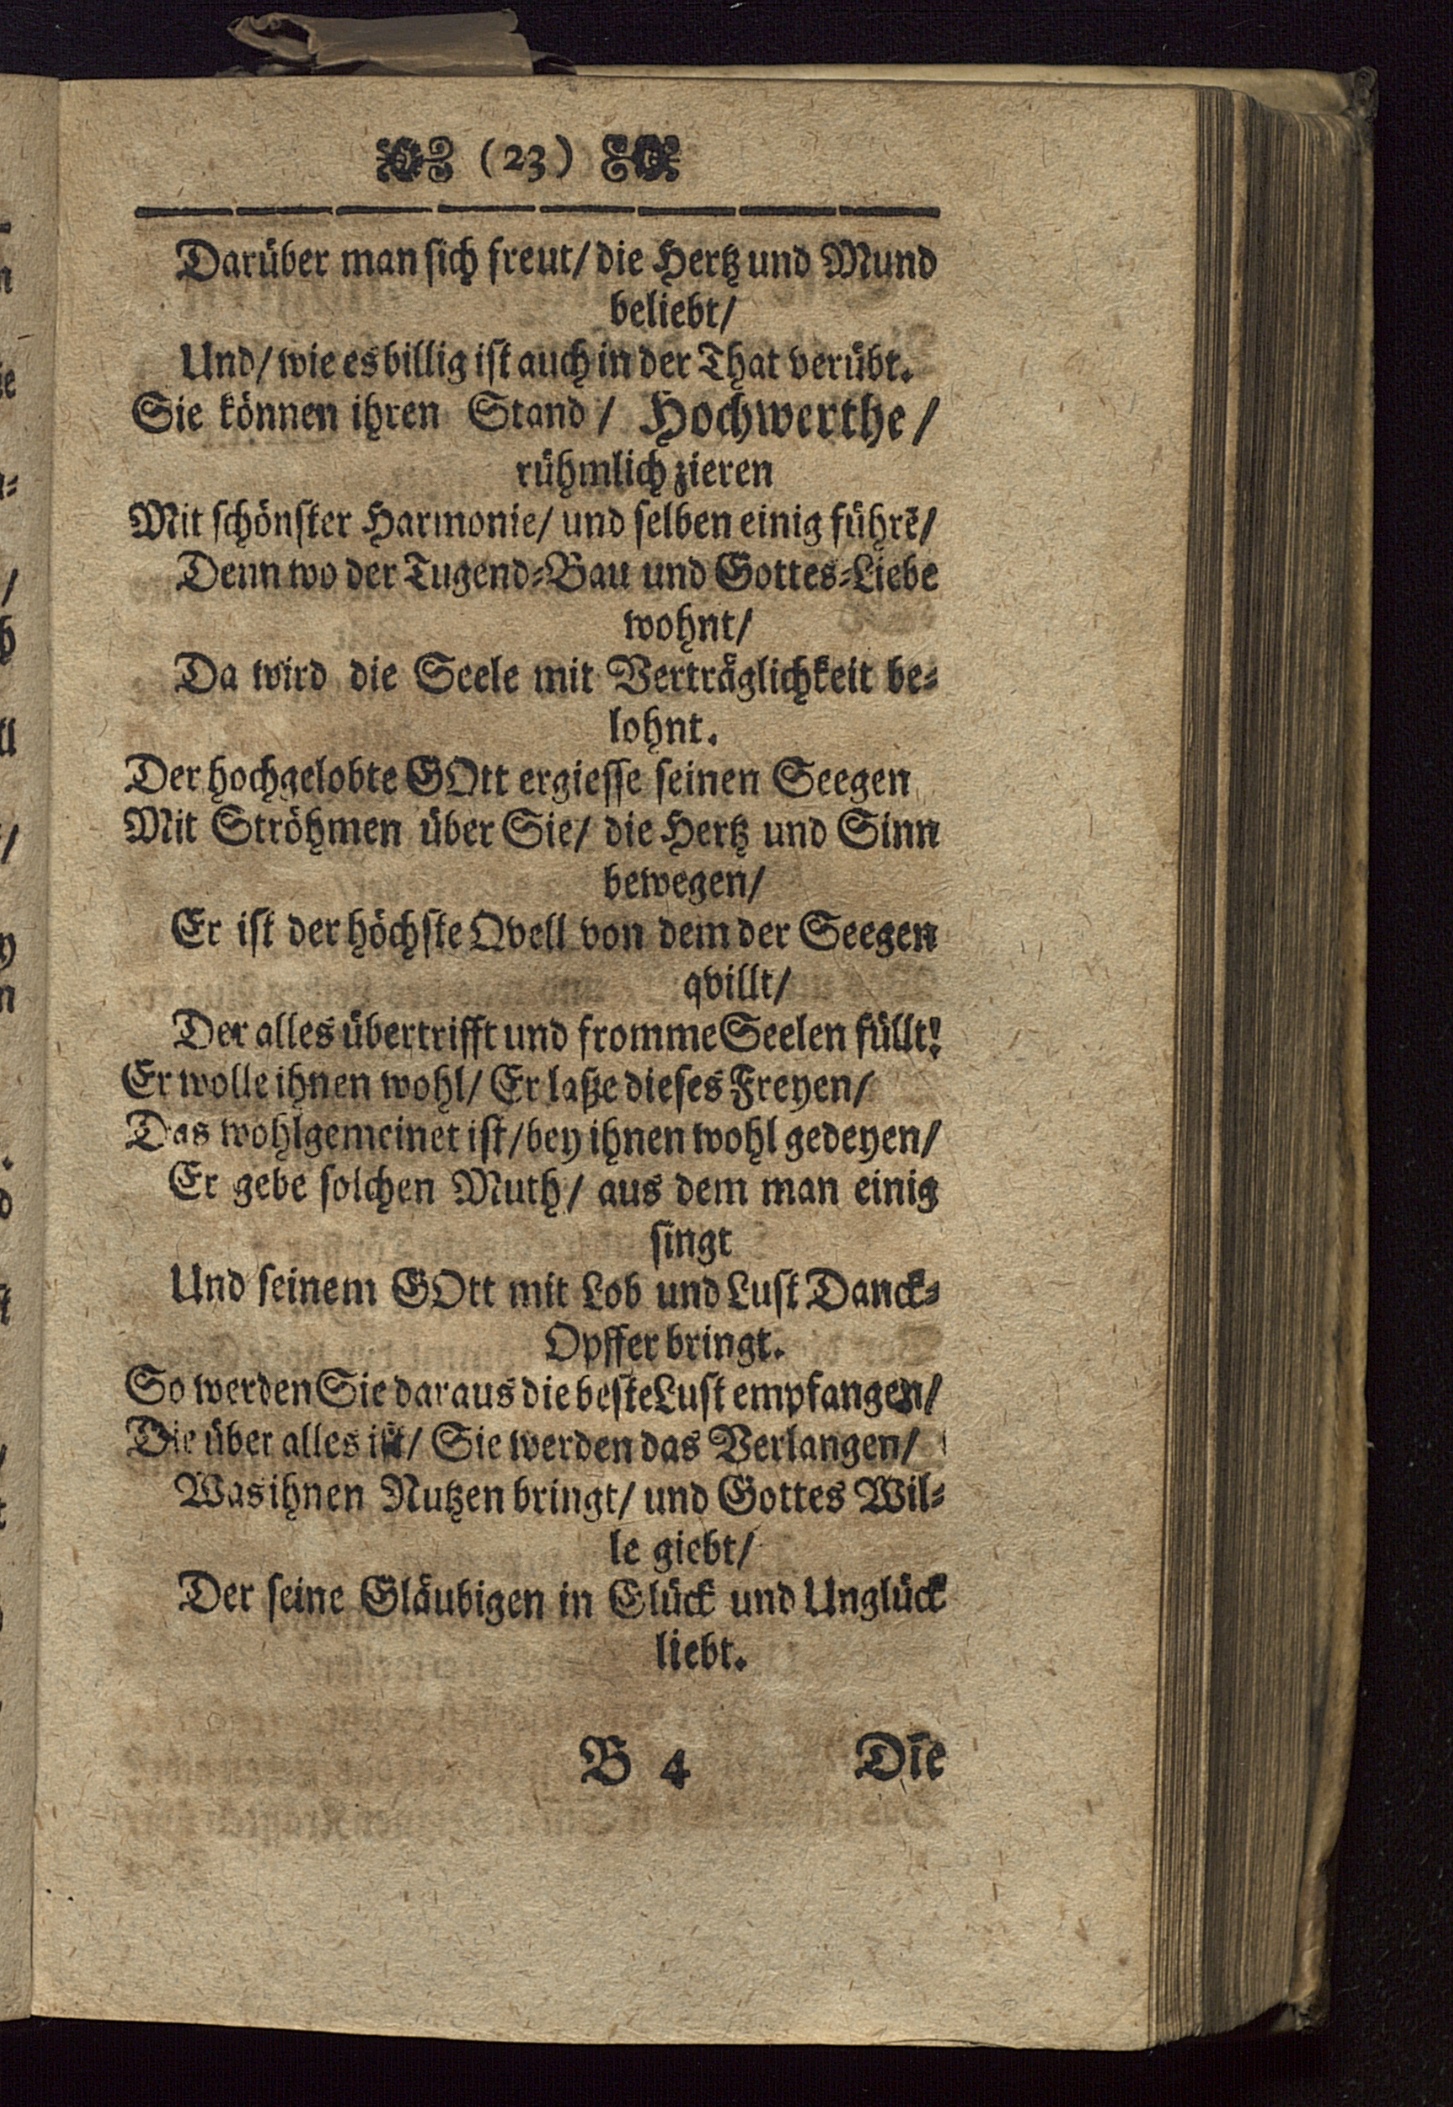 (23)
Darüber man sich freut/ die Hertz und Mund
beliebt/
Und/ wie es billig ist auch in der That verübt.
Sie können ihren Stand/ Hochwerthe/
rühmlich zieren
Mit schönster Harmonie/ und selben einig führē/
Denn wo der Tugend-Bau und Gottes-Liebe
wohnt/
Da wird die Seele mit Verträglichkeit be-
lohnt.
Der hochgelobte GOtt ergiesse seinen Seegen
Mit Ströhmen über Sie/ die Hertz und Sinn
bewegen/
Er ist der höchste Qvell von dem der Seegen
qvillt/
Der alles übertrifft und fromme Seelen füllt!
Er wolle ihnen wohl/ Er laße dieses Freyen/
Das wohlgemeinet ist/ bey ihnen wohl gedeyen/
Er gebe solchen Muth/ aus dem man einig
singt
Und seinem GOtt mit Lob und Lust Danck-
Opffer bringt.
So werden Sie daraus die beste Lust empfangen/
Die über alles ist/ Sie werden das Verlangen/
Was ihnen Nutzen bringt/ und Gottes Wil-
le giebt/
Der seine Gläubigen in Glück und Unglück
liebt.
B 4 Die